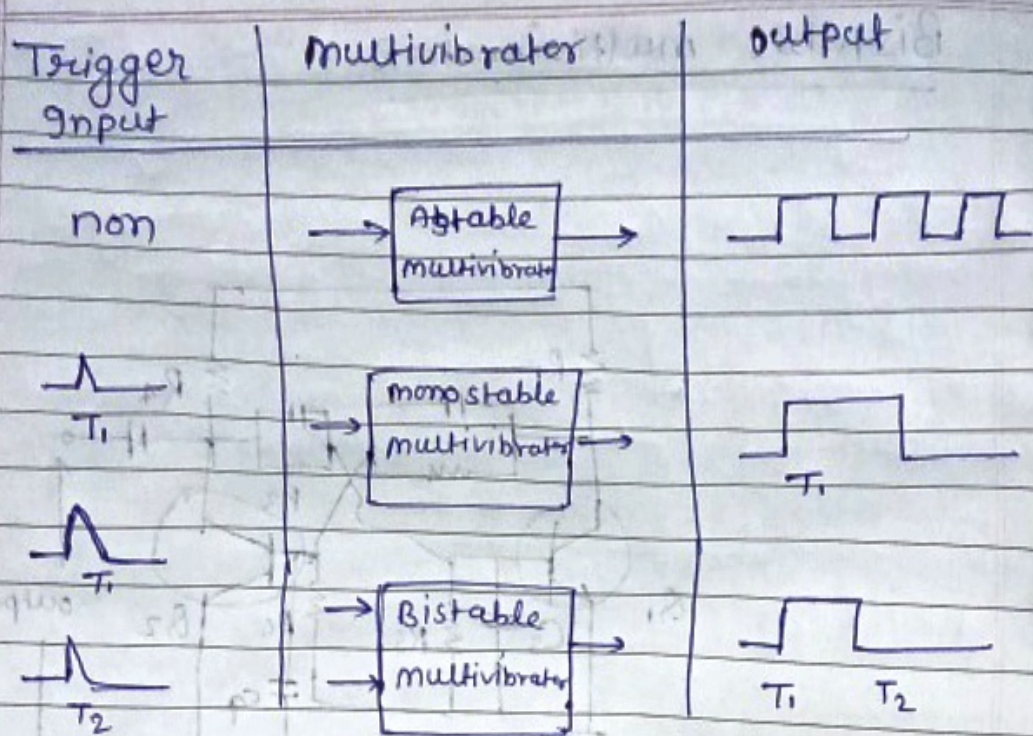 Trigger
Input
multivibrator
output
non
Astable
multivibrato
T1
monostable
multivibrator
T1
T1
T2
Bistable
multivibrator
T1 T2